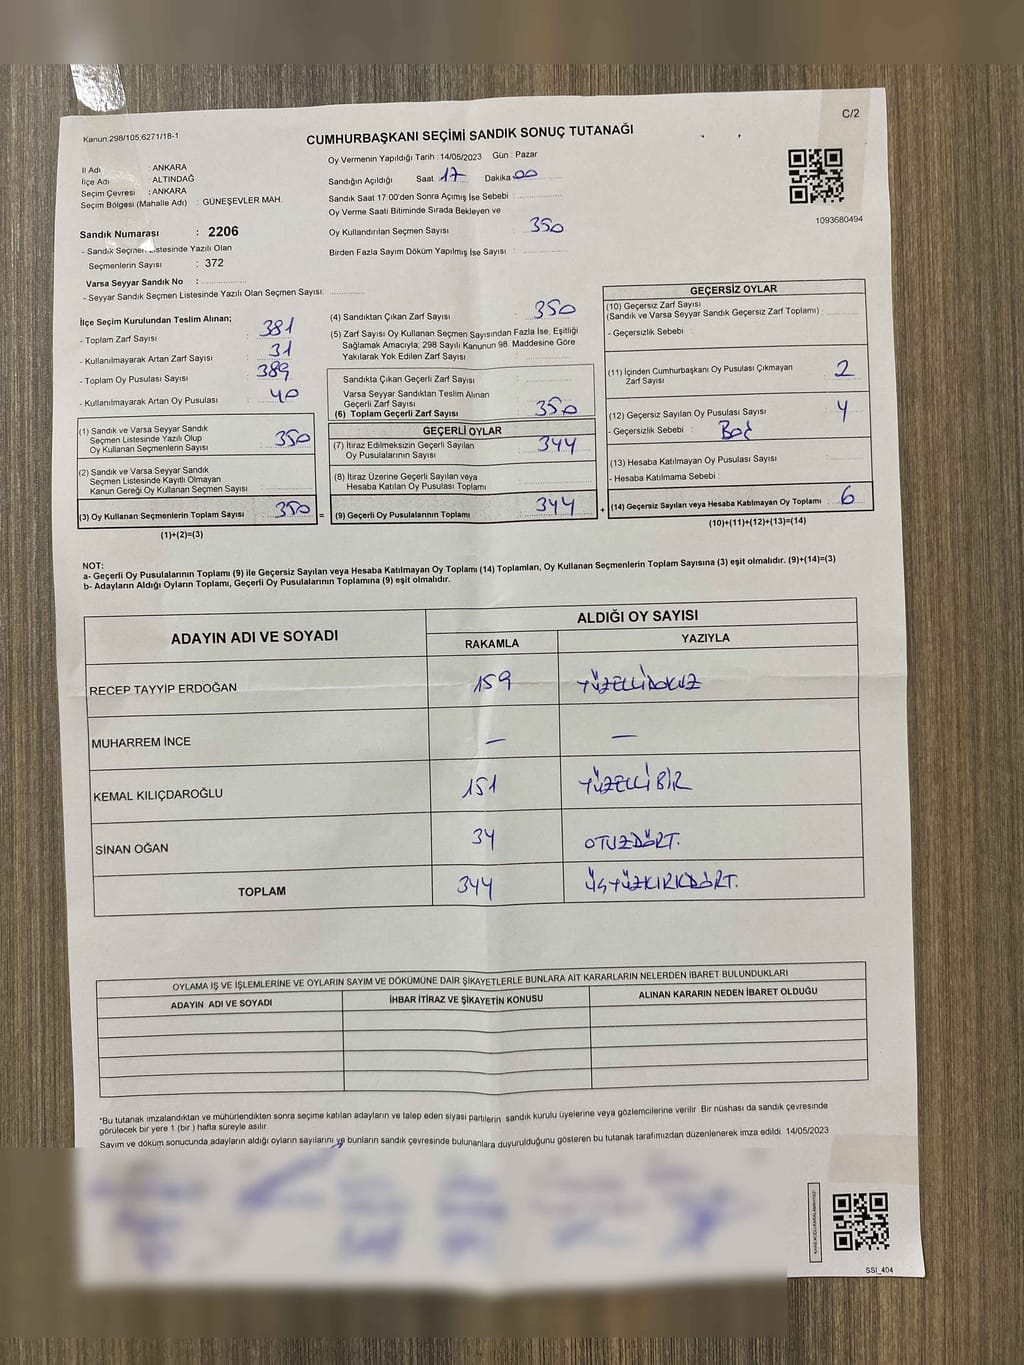 Kanun 298/105,6271/18-1
C/2
CUMHURBAŞKANI SEÇİMİ SANDIK SONUÇ TUTANAĞI
İl Adı : ANKARA
İlçe Adı : ALTINDAĞ
Seçim Çevresi : ANKARA
Seçim Bölgesi (Mahalle Adı) : GÜNEŞEVLER MAH.
Sandık Numarası : 2206
- Sandık Seçmen Listesinde Yazılı Olan
Seçmenlerin Sayısı : 372
Varsa Seyyar Sandık No :
- Seyyar Sandık Seçmen Listesinde Yazılı Olan Seçmen Sayısı:
Oy Vermenin Yapıldığı Tarih : 14/05/2023 Gün : Pazar
Sandığın Açıldığı Saat 17 Dakika 00
Sandık Saat 17:00'den Sonra Açımış İse Sebebi :
Oy Verme Saati Bitiminde Sırada Bekleyen ve
Oy Kullandırılan Seçmen Sayısı : 350
Birden Fazla Sayım Döküm Yapılmış İse Sayısı :
1093680494
İlçe Seçim Kurulundan Teslim Alınan;
- Toplam Zarf Sayısı : 381
- Kullanılmayarak Artan Zarf Sayısı : 31
- Toplam Oy Pusulası Sayısı : 389
- Kullanılmayarak Artan Oy Pusulası : 40
(1) Sandık ve Varsa Seyyar Sandık
Seçmen Listesinde Yazılı Olup
Oy Kullanan Seçmenlerin Sayısı : 350
(2) Sandık ve Varsa Seyyar Sandık
Seçmen Listesinde Kayıtlı Olmayan
Kanun Gereği Oy Kullanan Seçmen Sayısı :
(3) Oy Kullanan Seçmenlerin Toplam Sayısı : 350 =
(1)+(2)=(3)
(4) Sandıktan Çıkan Zarf Sayısı : 350
(5) Zarf Sayısı Oy Kullanan Seçmen Sayısından Fazla İse, Eşitliği
Sağlamak Amacıyla; 298 Sayılı Kanunun 98. Maddesine Göre
Yakılarak Yok Edilen Zarf Sayısı :
Sandıkta Çıkan Geçerli Zarf Sayısı :
Varsa Seyyar Sandıktan Teslim Alınan
Geçerli Zarf Sayısı :
(6) Toplam Geçerli Zarf Sayısı : 350
GEÇERLİ OYLAR
(7) İtiraz Edilmeksizin Geçerli Sayılan
Oy Pusulalarının Sayısı : 344
(8) İtiraz Üzerine Geçerli Sayılan veya
Hesaba Katılan Oy Pusulası Toplamı :
(9) Geçerli Oy Pusulalarının Toplamı : 344 +
GEÇERSİZ OYLAR
(10) Geçersiz Zarf Sayısı
(Sandık ve Varsa Seyyar Sandık Geçersiz Zarf Toplamı) :
- Geçersizlik Sebebi :
(11) İçinden Cumhurbaşkanı Oy Pusulası Çıkmayan
Zarf Sayısı : 2
(12) Geçersiz Sayılan Oy Pusulası Sayısı : 4
- Geçersizlik Sebebi : Boş
(13) Hesaba Katılmayan Oy Pusulası Sayısı :
- Hesaba Katılmama Sebebi :
(14) Geçersiz Sayılan veya Hesaba Katılmayan Oy Toplamı : 6
(10)+(11)+(12)+(13)=(14)
NOT:
a- Geçerli Oy Pusulalarının Toplamı (9) ile Geçersiz Sayılan veya Hesaba Katılmayan Oy Toplamı (14) Toplamları, Oy Kullanan Seçmenlerin Toplam Sayısına (3) eşit olmalıdır. (9)+(14)=(3)
b- Adayların Aldığı Oyların Toplamı, Geçerli Oy Pusulalarının Toplamına (9) eşit olmalıdır.
ADAYIN ADI VE SOYADI
ALDIĞI OY SAYISI
RAKAMLA YAZIYLA
RECEP TAYYİP ERDOĞAN 159 YÜZELLİDOKUZ
MUHARREM İNCE — —
KEMAL KILIÇDAROĞLU 151 YÜZELLİBİR
SİNAN OĞAN 34 OTUZDÖRT.
TOPLAM 344 ÜÇYÜZKIRKDÖRT.
OYLAMA İŞ VE İŞLEMLERİNE VE OYLARIN SAYIM VE DÖKÜMÜNE DAİR ŞİKAYETLERLE BUNLARA AİT KARARLARIN NELERDEN İBARET BULUNDUKLARI
ADAYIN ADI VE SOYADI İHBAR İTİRAZ VE ŞİKAYETİN KONUSU ALINAN KARARIN NEDEN İBARET OLDUĞU
*Bu tutanak imzalandıktan ve mühürlendikten sonra seçime katılan adayların ve talep eden siyasi partilerin sandık kurulu üyelerine veya gözlemcilerine verilir. Bir nüshası da sandık çevresinde
görülecek bir yere 1 (bir) hafta süreyle asılır.
Sayım ve döküm sonucunda adayların aldığı oyların sayılarını ve bunların sandık çevresinde bulunanlara duyurulduğunu gösteren bu tutanak tarafımızdan düzenlenerek imza edildi. 14/05/2023
SSI_404